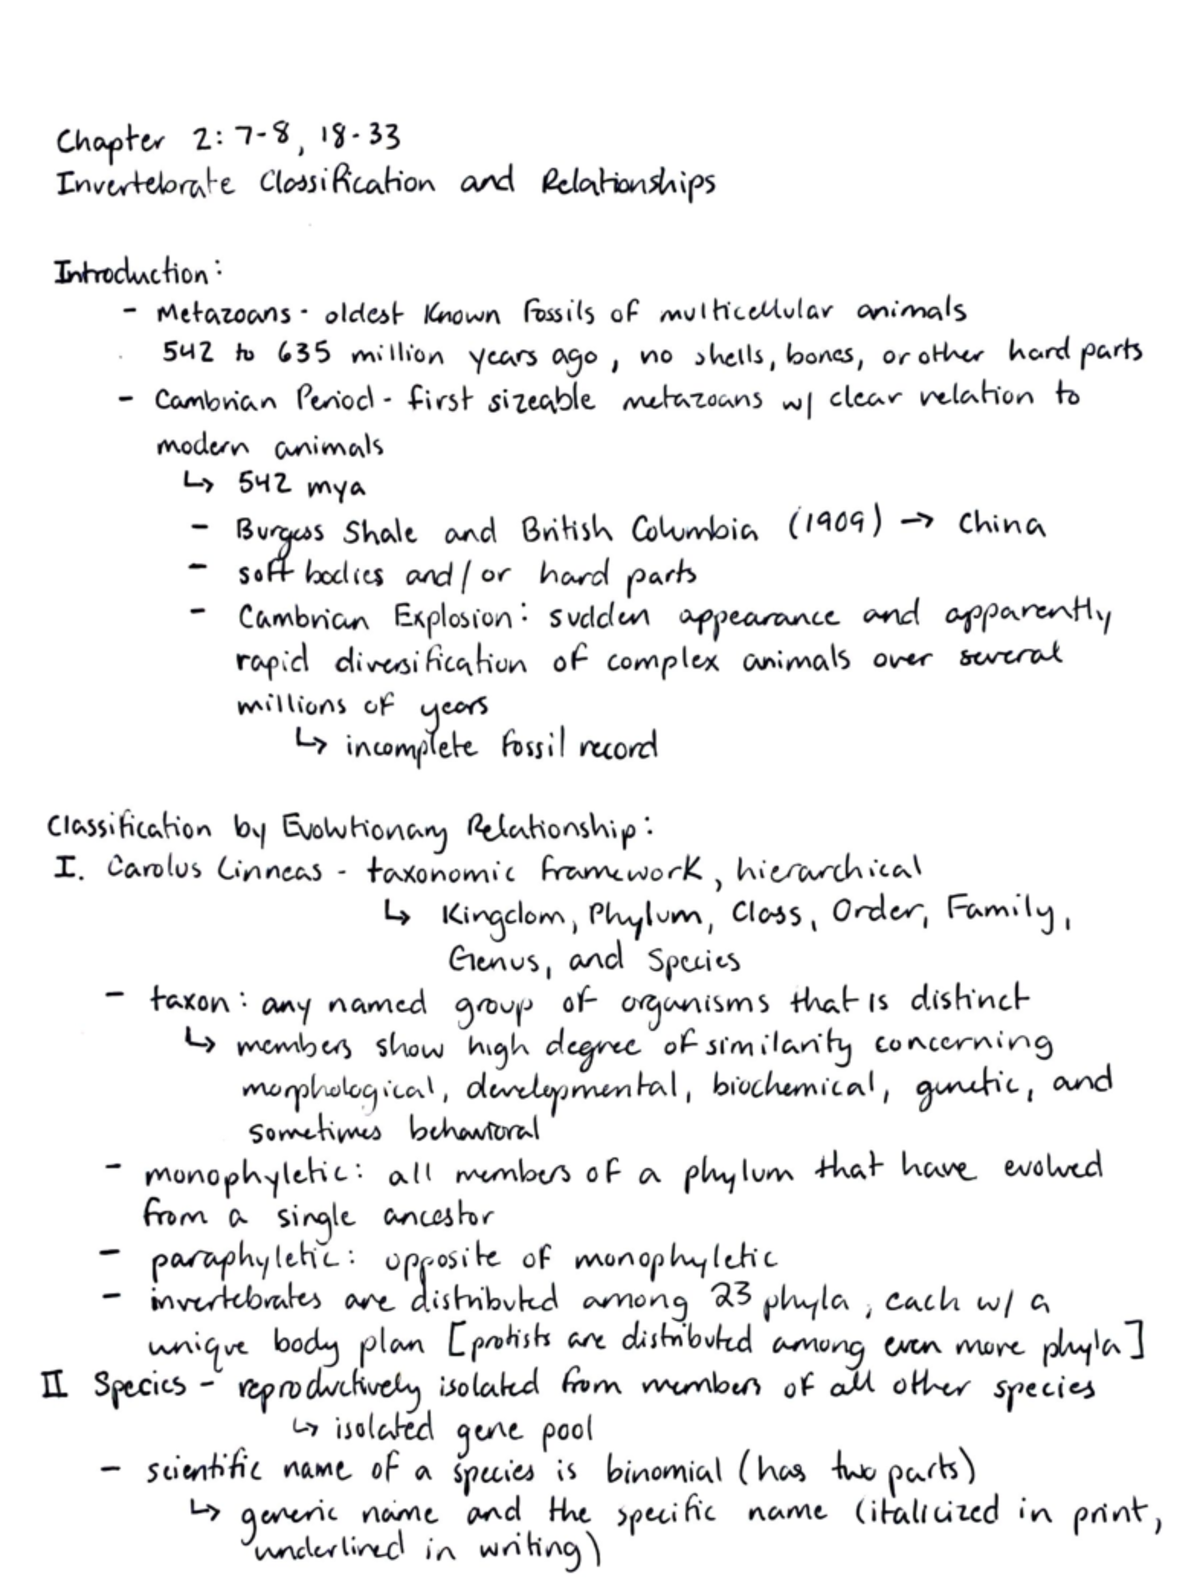 Chapter 2: 7-8, 18-33
Invertebrate Classification and Relationships
Introduction:
- Metazoans - oldest known fossils of multicellular animals
542 to 635 million years ago, no shells, bones, or other hard parts
- Cambrian Period - first sizeable metazoans w/ clear relation to
modern animals
↳ 542 mya
- Burgess Shale and British Columbia (1909) → China
- soft bodies and/or hard parts
- Cambrian Explosion: sudden appearance and apparently
rapid diversification of complex animals over several
millions of years
↳ incomplete fossil record
Classification by Evolutionary Relationship:
I. Carolus Linneas - taxonomic framework, hierarchical
↳ Kingdom, Phylum, Class, Order, Family,
Genus, and Species
- taxon: any named group of organisms that is distinct
↳ members show high degree of similarity concerning
morphological, developmental, biochemical, genetic, and
sometimes behavioral
- monophyletic: all members of a phylum that have evolved
from a single ancestor
- paraphyletic: opposite of monophyletic
- invertebrates are distributed among 23 phyla, each w/ a
unique body plan [protists are distributed among even more phyla]
II Species - reproductively isolated from members of all other species
↳ isolated gene pool
- scientific name of a species is binomial (has two parts)
↳ generic name and the specific name (italicized in print,
underlined in writing)